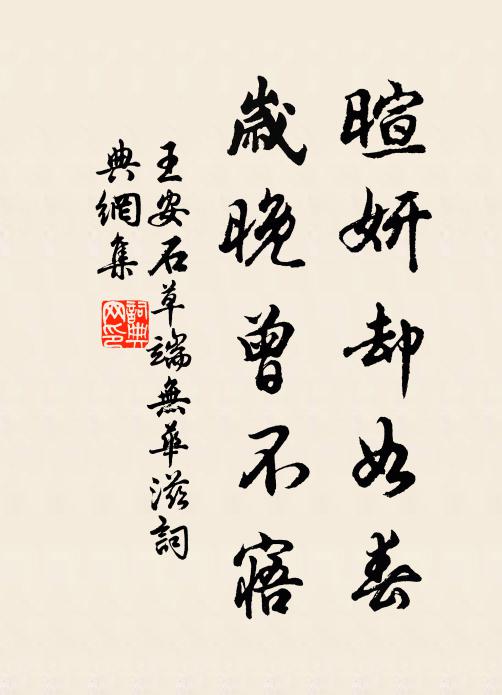 暄妍却如春
歲晚曾不寤
王安石草端無華滋詞
典網集
詞典网印